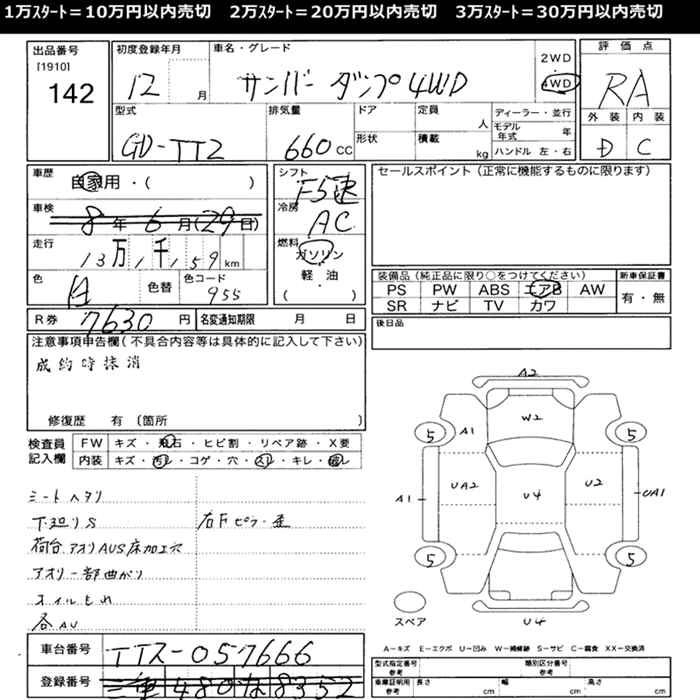 1万ｽﾀｰﾄ＝10万円以内売切　2万ｽﾀｰﾄ＝20万円以内売切　3万ｽﾀｰﾄ＝30万円以内売切
出品番号
[1910]
142
初度登録年月
12 月
車名・グレード
サンバー ダンプ 4WD
2WD
4WD
評価点
RA
外装 内装
D C
型式
GD-TT2
排気量
660 CC
ドア
形状
定員 人
積載 kg
ディーラー・並行
モデル年式 年
ハンドル 左・右
車歴
自家用・( )
車検
8年6月(29日)
走行
13万1千159 km
色
白
色替
色コード
955
シフト
F5速
冷房
AC
燃料
ガソリン
軽・油
( )
セールスポイント（正常に機能するものに限ります）
装備品（純正品に限り○をつけてください）
PS PW ABS エアB AW
SR ナビ TV カワ
新車保証書
有・無
後日品
R券 7630 円
名変通知期限 月 日
注意事項申告欄（不具合内容等は具体的に記入して下さい）
成約時抹消
修復歴 有 〔箇所 〕
検査員記入欄
FW キズ・飛石・ヒビ割・リペア跡・X要
内装 キズ・汚レ・コゲ・穴・スレ・キレ・破レ
シートヘタリ
下廻りS
右Fピラー歪
荷台アオリAUS床加工穴
アオリ一部曲がり
オイルもれ
各AU
A2
W2
5
5
A1
UA2
U4
U2
A1
UA1
5
5
スペア
U4
A－キズ E－エクボ U－凹み W－補修跡 S－サビ C－腐食 XX－交換済
車台番号
TT2-057666
登録番号
三重 480 な 8352
型式指定番号
参考
類別区分番号
参考
車庫証明用
参考
長さ cm
幅 cm
高さ cm